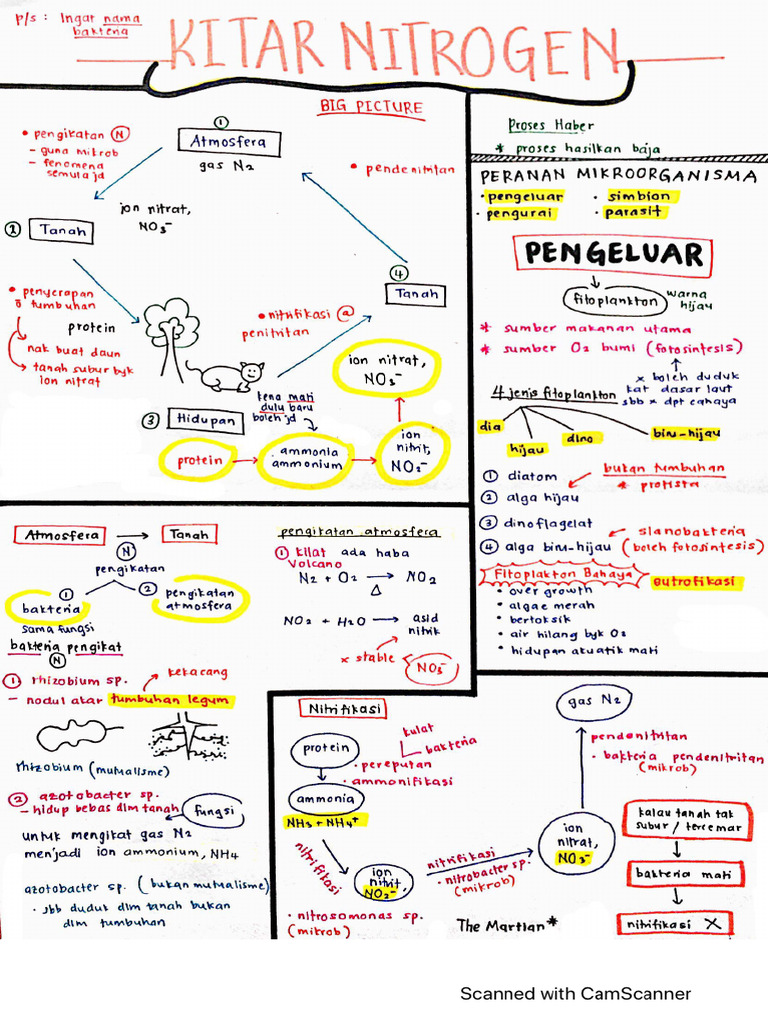 P/s : Ingat nama
bakteria
KITAR NITROGEN
BIG PICTURE
①
Atmosfera
gas N₂
• pengikatan Ⓝ
– guna mikrob
– fenomena
semulajd
• pendenitritan
② Tanah
ion nitrat,
NO₃⁻
④
Tanah
• penyerapan
o tumbuhan
protein
nak buat daun
tanah subur byk
ion nitrat
• nitrifikasi @
penitritan
ion nitrat,
NO₃⁻
kena mati
dulu baru
boleh jd
③ Hidupan
protein
ammonia
ammonium
ion
nitrit,
NO₂⁻
Proses Haber
* proses hasilkan baja
PERANAN MIKROORGANISMA
· pengeluar
· simbion
· pengurai
· parasit
PENGELUAR
fitoplankton
warna
hijau
* sumber makanan utama
* sumber O₂ bumi (fotosintesis)
x boleh duduk
kat dasar laut
sbb x dpt cahaya
4 jenis fitoplankton
dia
hijau
dino
biru-hijau
① diatom
② alga hijau
③ dinoflagelat
④ alga biru-hijau
bukan tumbuhan
* protista
sianobakteria
(boleh fotosintesis)
Fitoplakton Bahaya
eutrofikasi
• over growth
• algae merah
• bertoksik
• air hilang byk O₂
• hidupan akuatik mati
Atmosfera → Tanah
Ⓝ
pengikatan
①
bakteria
② pengikatan
atmosfera
sama fungsi
bakteria pengikat
Ⓝ
① rhizobium sp.
– nodul akar tumbuhan legum
kekacang
rhizobium (mutualisme)
② azotobacter sp.
– hidup bebas dlm tanah
fungsi
untuk mengikat gas N₂
menjadi ion ammonium, NH4
azotobacter sp. (bukan mutualisme)
· sbb duduk dlm tanah bukan
dlm tumbuhan
pengikatan atmosfera
① kilat ada haba
volcano
N₂ + O₂ → NO₂
Δ
NO₂ + H₂O → asid
nitrik
x stable
NO₃⁻
Nitrifikasi
protein
kulat
bakteria
• pereputan
• ammonifikasi
ammonia
NH₃ + NH₄⁺
nitrifikasi
ion
nitrit,
NO₂⁻
• nitrosomonas sp.
(mikrob)
nitrifikasi
• nitrobacter sp.
(mikrob)
The Martian*
ion
nitrat,
NO₃⁻
gas N₂
pendenitritan
· bakteria pendenitritan
(mikrob)
kalau tanah tak
subur / tercemar
bakteria mati
nitrifikasi X
Scanned with CamScanner